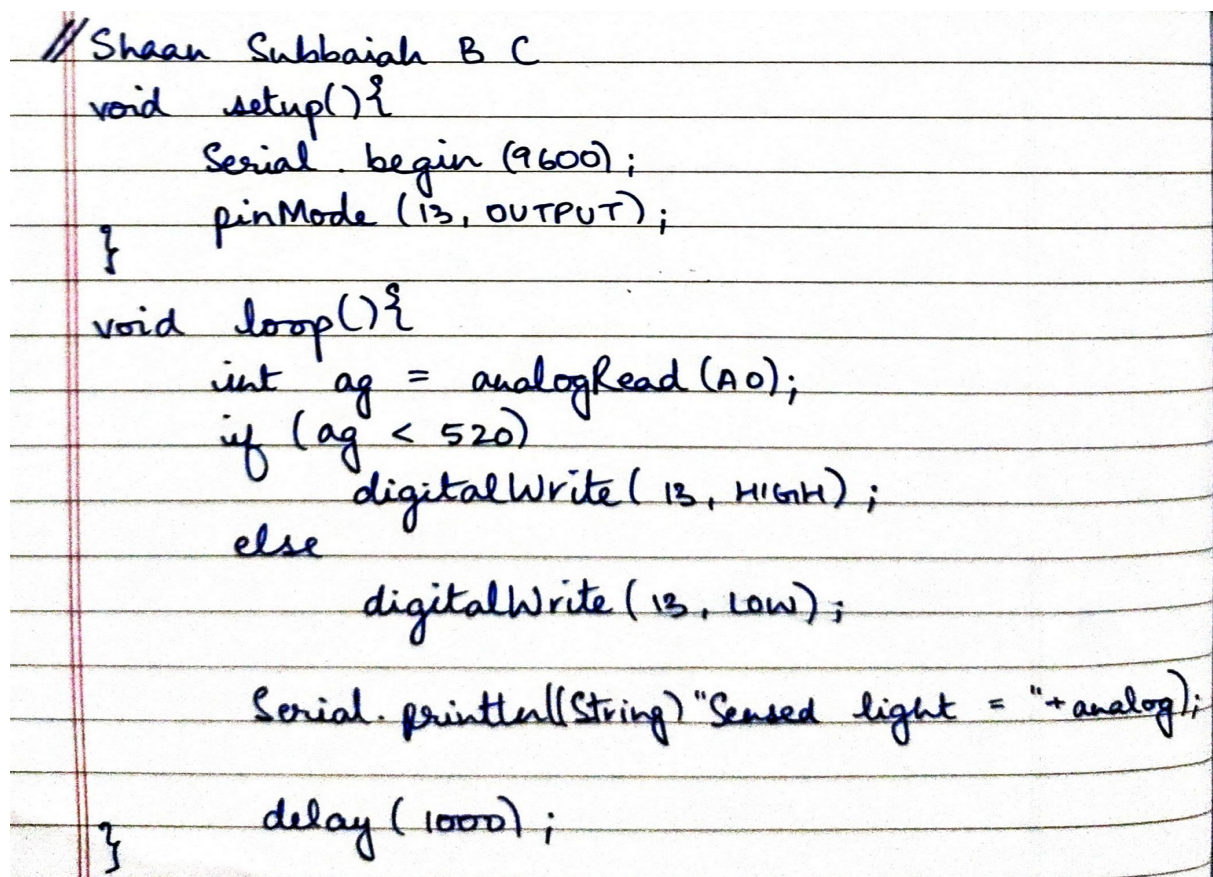 // Shaan Subbaiah B C
void setup(){
Serial. begin (9600);
pinMode (13, OUTPUT);
}
void loop(){
int ag = analogRead (A0);
if (ag < 520)
digitalWrite( 13, HIGH);
else
digitalWrite( 13, LOW);
Serial. println((String) "Sensed light = "+ analog);
delay ( 1000) ;
}